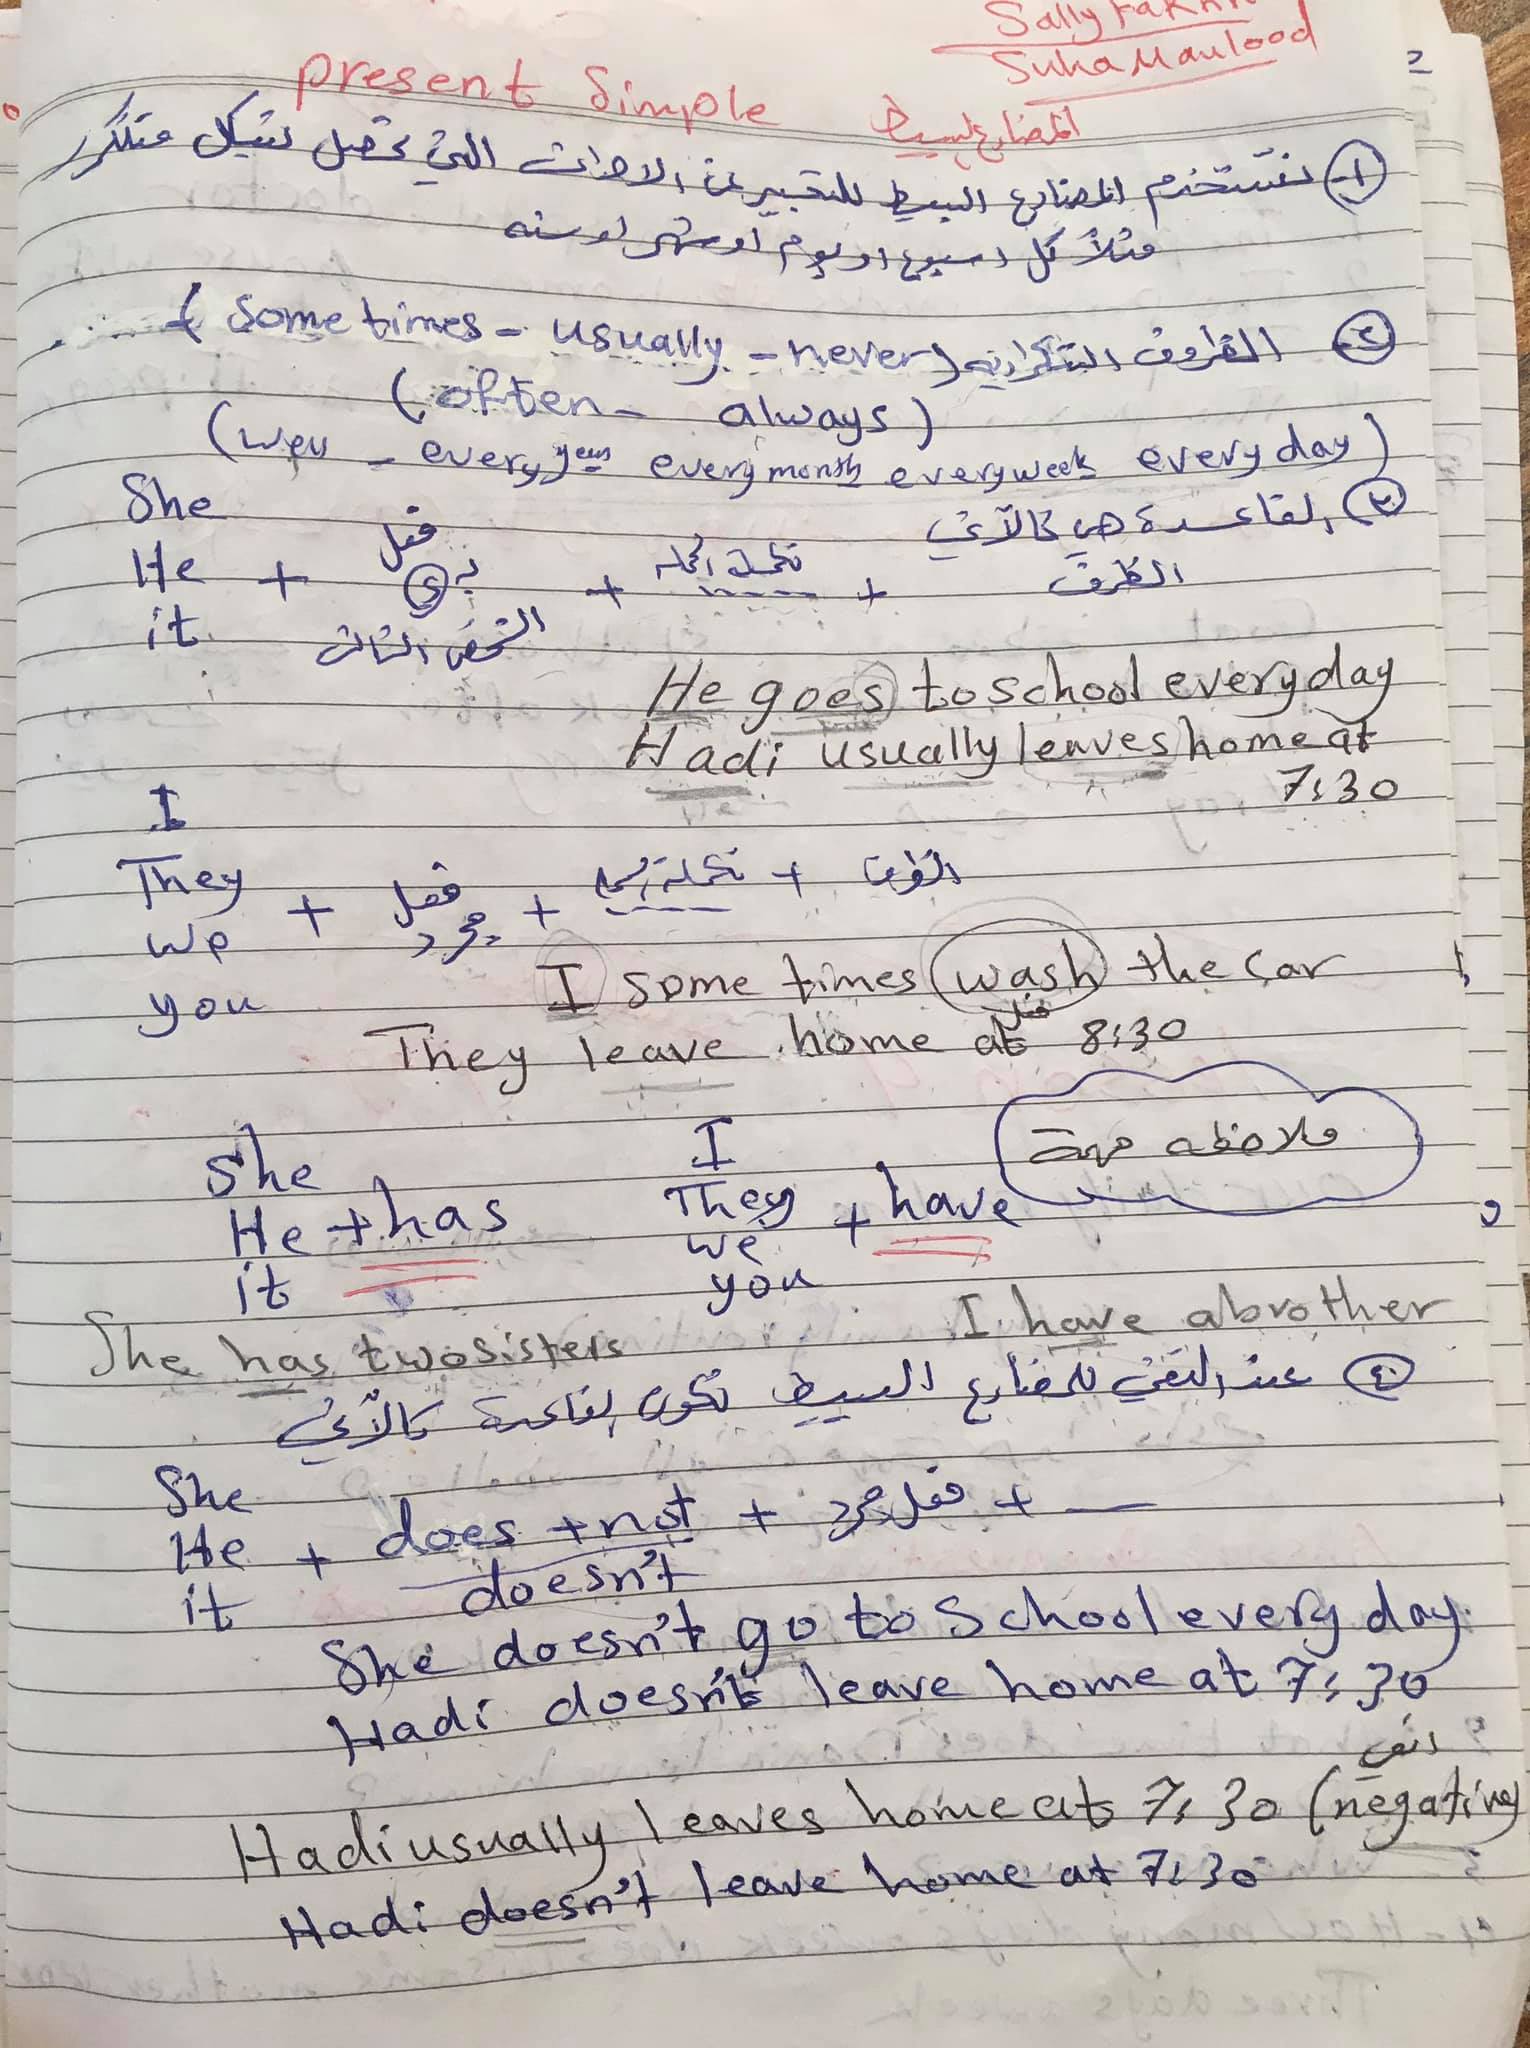 Sally
Suha Maulood
present Simple المضارع البسيط
١- نستخدم المضارع البسيط للتعبير عن الاحداث التي تحصل بشكل متكرر
مثلاً كل اسبوع او يوم او شهر او سنه
٢- الظروف التكراريه (some times - usually - never)
(often - always)
( - every year every month every week every day)
٣ القاعدة هي كالآتي
She
He + فعل بـ s + تكملة الجملة + الظرف
it الشخص الثالث
He goes to school every day
Hadi usually leaves home at
7:30
I
They + فعل مجرد + تكملة الجملة + الظرف
we
you
I some times wash the car
فعل
They leave home at 8:30
ملاحظه مهمة
She
He + has
it
I
They + have
we
you
She has two sisters
I have a brother
٤ عند النفي للمضارع البسيط تكون القاعدة كالآتي
She
He + does + not + فعل مجرد +
it doesn't
She doesn't go to school every day.
Hadi doesn't leave home at 7:30
انفي
Hadi usually leaves home at 7:30 (negative)
Hadi doesn't leave home at 7:30